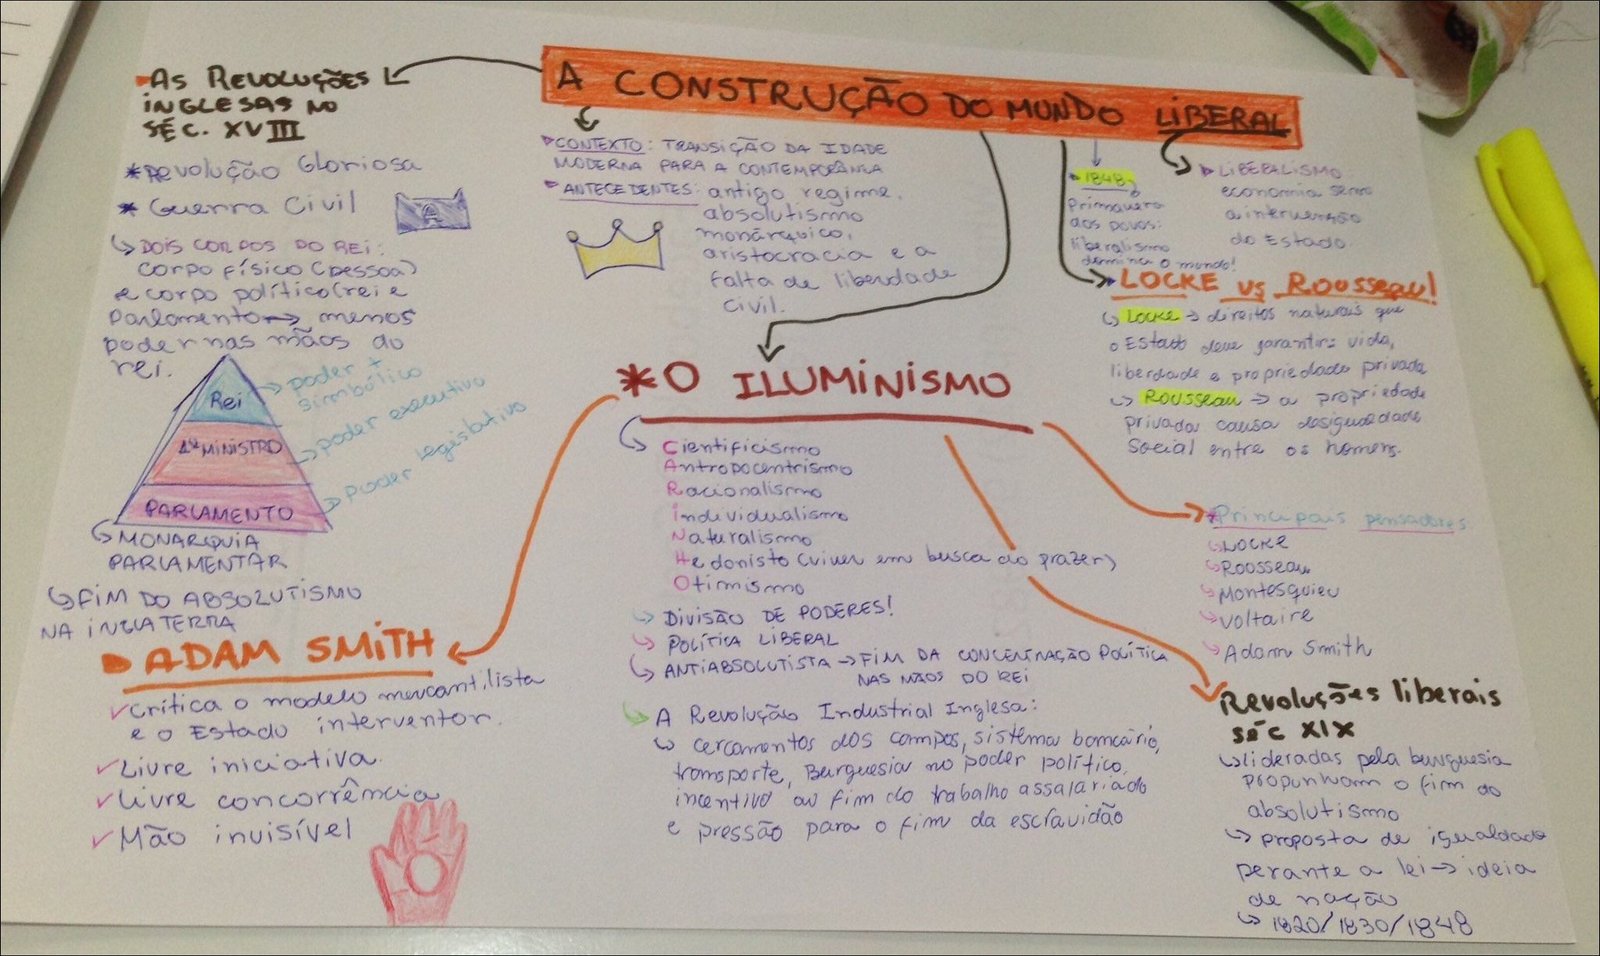 A CONSTRUÇÃO DO MUNDO LIBERAL
AS REVOLUÇÕES
INGLESAS NO
SÉC. XVIII
*REVOLUÇÃO Gloriosa
* Guerra Civil
DOIS CORPOS DO REI:
corpo físico (pessoa)
e corpo político (rei e
Parlamento → menos
poder nas mãos do
rei.
Rei
1º MINISTRO
PARLAMENTO
poder +
simbólico
poder executivo
poder legislativo
MONARQUIA
PARLAMENTAR
FIM DO ABSOLUTISMO
NA INGLATERRA
ADAM SMITH
✓crítica o modelo mercantilista
e o Estado interventor.
✓Livre iniciativa.
✓Livre concorrência
✓Mão invisível
CONTEXTO: TRANSIÇÃO DA IDADE
MODERNA PARA A CONTEMPORÂNIA
ANTECEDENTES: antigo regime,
absolutismo
monárquico,
aristocracia e a
falta de liberdade
civil.
*O ILUMINISMO
Cientificismo
Antropocentrismo
Racionalismo
individualismo
Naturalismo
Hedonisto (viver em busca do prazer)
Otimismo
DIVISÃO DE PODERES!
POLÍTICA LIBERAL
ANTIABSOLUTISTA → FIM DA CONCENTRAÇÃO POLÍTICA
NAS MÃOS DO REI
A Revolução Industrial Inglesa:
cercamentos dos campos, sistema bancário,
transporte, Burguesia no poder político,
incentivo ao fim do trabalho assalariado
e pressão para o fim da escravidão
1848:
Primavera
dos povos:
liberalismo
domina o mundo!
LIBERALISMO
economia sem
a intervenção
do Estado.
LOCKE vs ROUSSEAU!
Locke → direitos naturais que
o Estado deve garantir: vida,
liberdade e propriedade privada
Rousseau → a propriedade
privada causa desigualdade
social entre os homens.
Principais pensadores
LOCKE
Rousseau
Montesquieu
Voltaire
Adam Smith
Revoluções liberais
séc XIX
lideradas pela burguesia
propunham o fim do
absolutismo
proposta de igualdade
perante a lei → ideia
de nação
1820/1830/1848